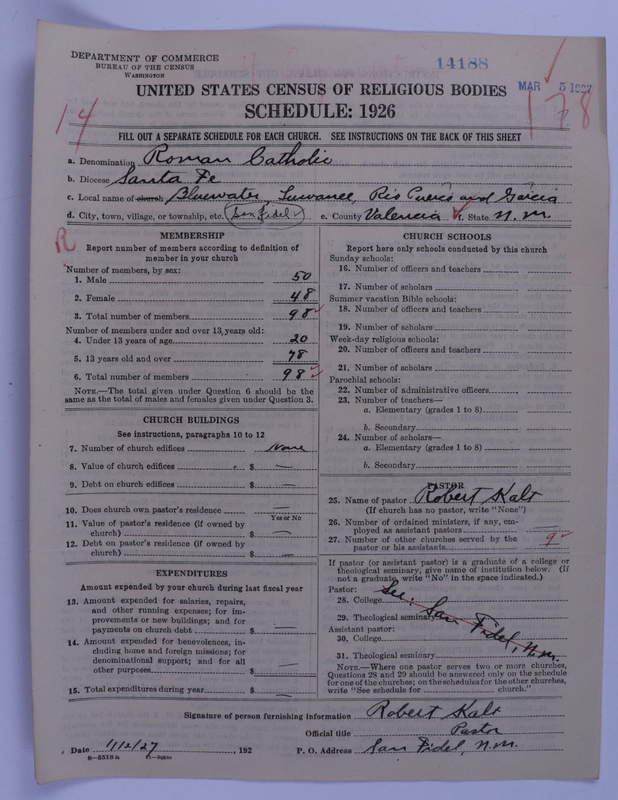 DEPARTMENT OF COMMERCE
BUREAU OF THE CENSUS
WASHINGTON
14188
MAR 5 1927
UNITED STATES CENSUS OF RELIGIOUS BODIES
178
SCHEDULE: 1926
14
FILL OUT A SEPARATE SCHEDULE FOR EACH CHURCH. SEE INSTRUCTIONS ON THE BACK OF THIS SHEET
a. Denomination Roman Catholic
b. Diocese Santa Fe
c. Local name of church Bluewater, Suwanee, Rio Puerco and Garcia
d. City, town, village, or township, etc. San Fidel e. County Valencia f. State N. M.
R
MEMBERSHIP
Report number of members according to definition of
member in your church
Number of members, by sex:
1. Male 50
2. Female 48
3. Total number of members 98
Number of members under and over 13 years old:
4. Under 13 years of age 20
5. 13 years old and over 78
6. Total number of members 98
NOTE.—The total given under Question 6 should be the
same as the total of males and females given under Question 3.
CHURCH BUILDINGS
See instructions, paragraphs 10 to 12
7. Number of church edifices None
8. Value of church edifices $ —
9. Debt on church edifices $ —
10. Does church own pastor's residence —
Yes or No
11. Value of pastor's residence (if owned by
church) $ —
12. Debt on pastor's residence (if owned by
church) $ —
EXPENDITURES
Amount expended by your church during last fiscal year
13. Amount expended for salaries, repairs,
and other running expenses; for im-
provements or new buildings; and for
payments on church debt $ —
14. Amount expended for benevolences, in-
cluding home and foreign missions; for
denominational support; and for all
other purposes $ —
15. Total expenditures during year $ —
CHURCH SCHOOLS
Report here only schools conducted by this church
Sunday schools:
16. Number of officers and teachers
17. Number of scholars
Summer vacation Bible schools:
18. Number of officers and teachers
19. Number of scholars
Week-day religious schools:
20. Number of officers and teachers
21. Number of scholars
Parochial schools:
22. Number of administrative officers
23. Number of teachers—
a. Elementary (grades 1 to 8)
b. Secondary
24. Number of scholars—
a. Elementary (grades 1 to 8)
b. Secondary
PASTOR
25. Name of pastor Robert Kalt
(If church has no pastor, write "None")
26. Number of ordained ministers, if any, em-
ployed as assistant pastors —
27. Number of other churches served by the
pastor or his assistants 9
If pastor (or assistant pastor) is a graduate of a college or
theological seminary, give name of institution below. (If
not a graduate, write "No" in the space indicated.)
Pastor:
28. College See: San Fidel, N.M.
29. Theological seminary
Assistant pastor:
30. College
31. Theological seminary
NOTE.—Where one pastor serves two or more churches,
Questions 28 and 29 should be answered only on the schedule
for one of the churches; on the schedules for the other churches,
write "See schedule for church."
Signature of person furnishing information Robert Kalt
Official title Pastor
Date 1/12/27, 192 P. O. Address San Fidel, N.M.
8-5518a